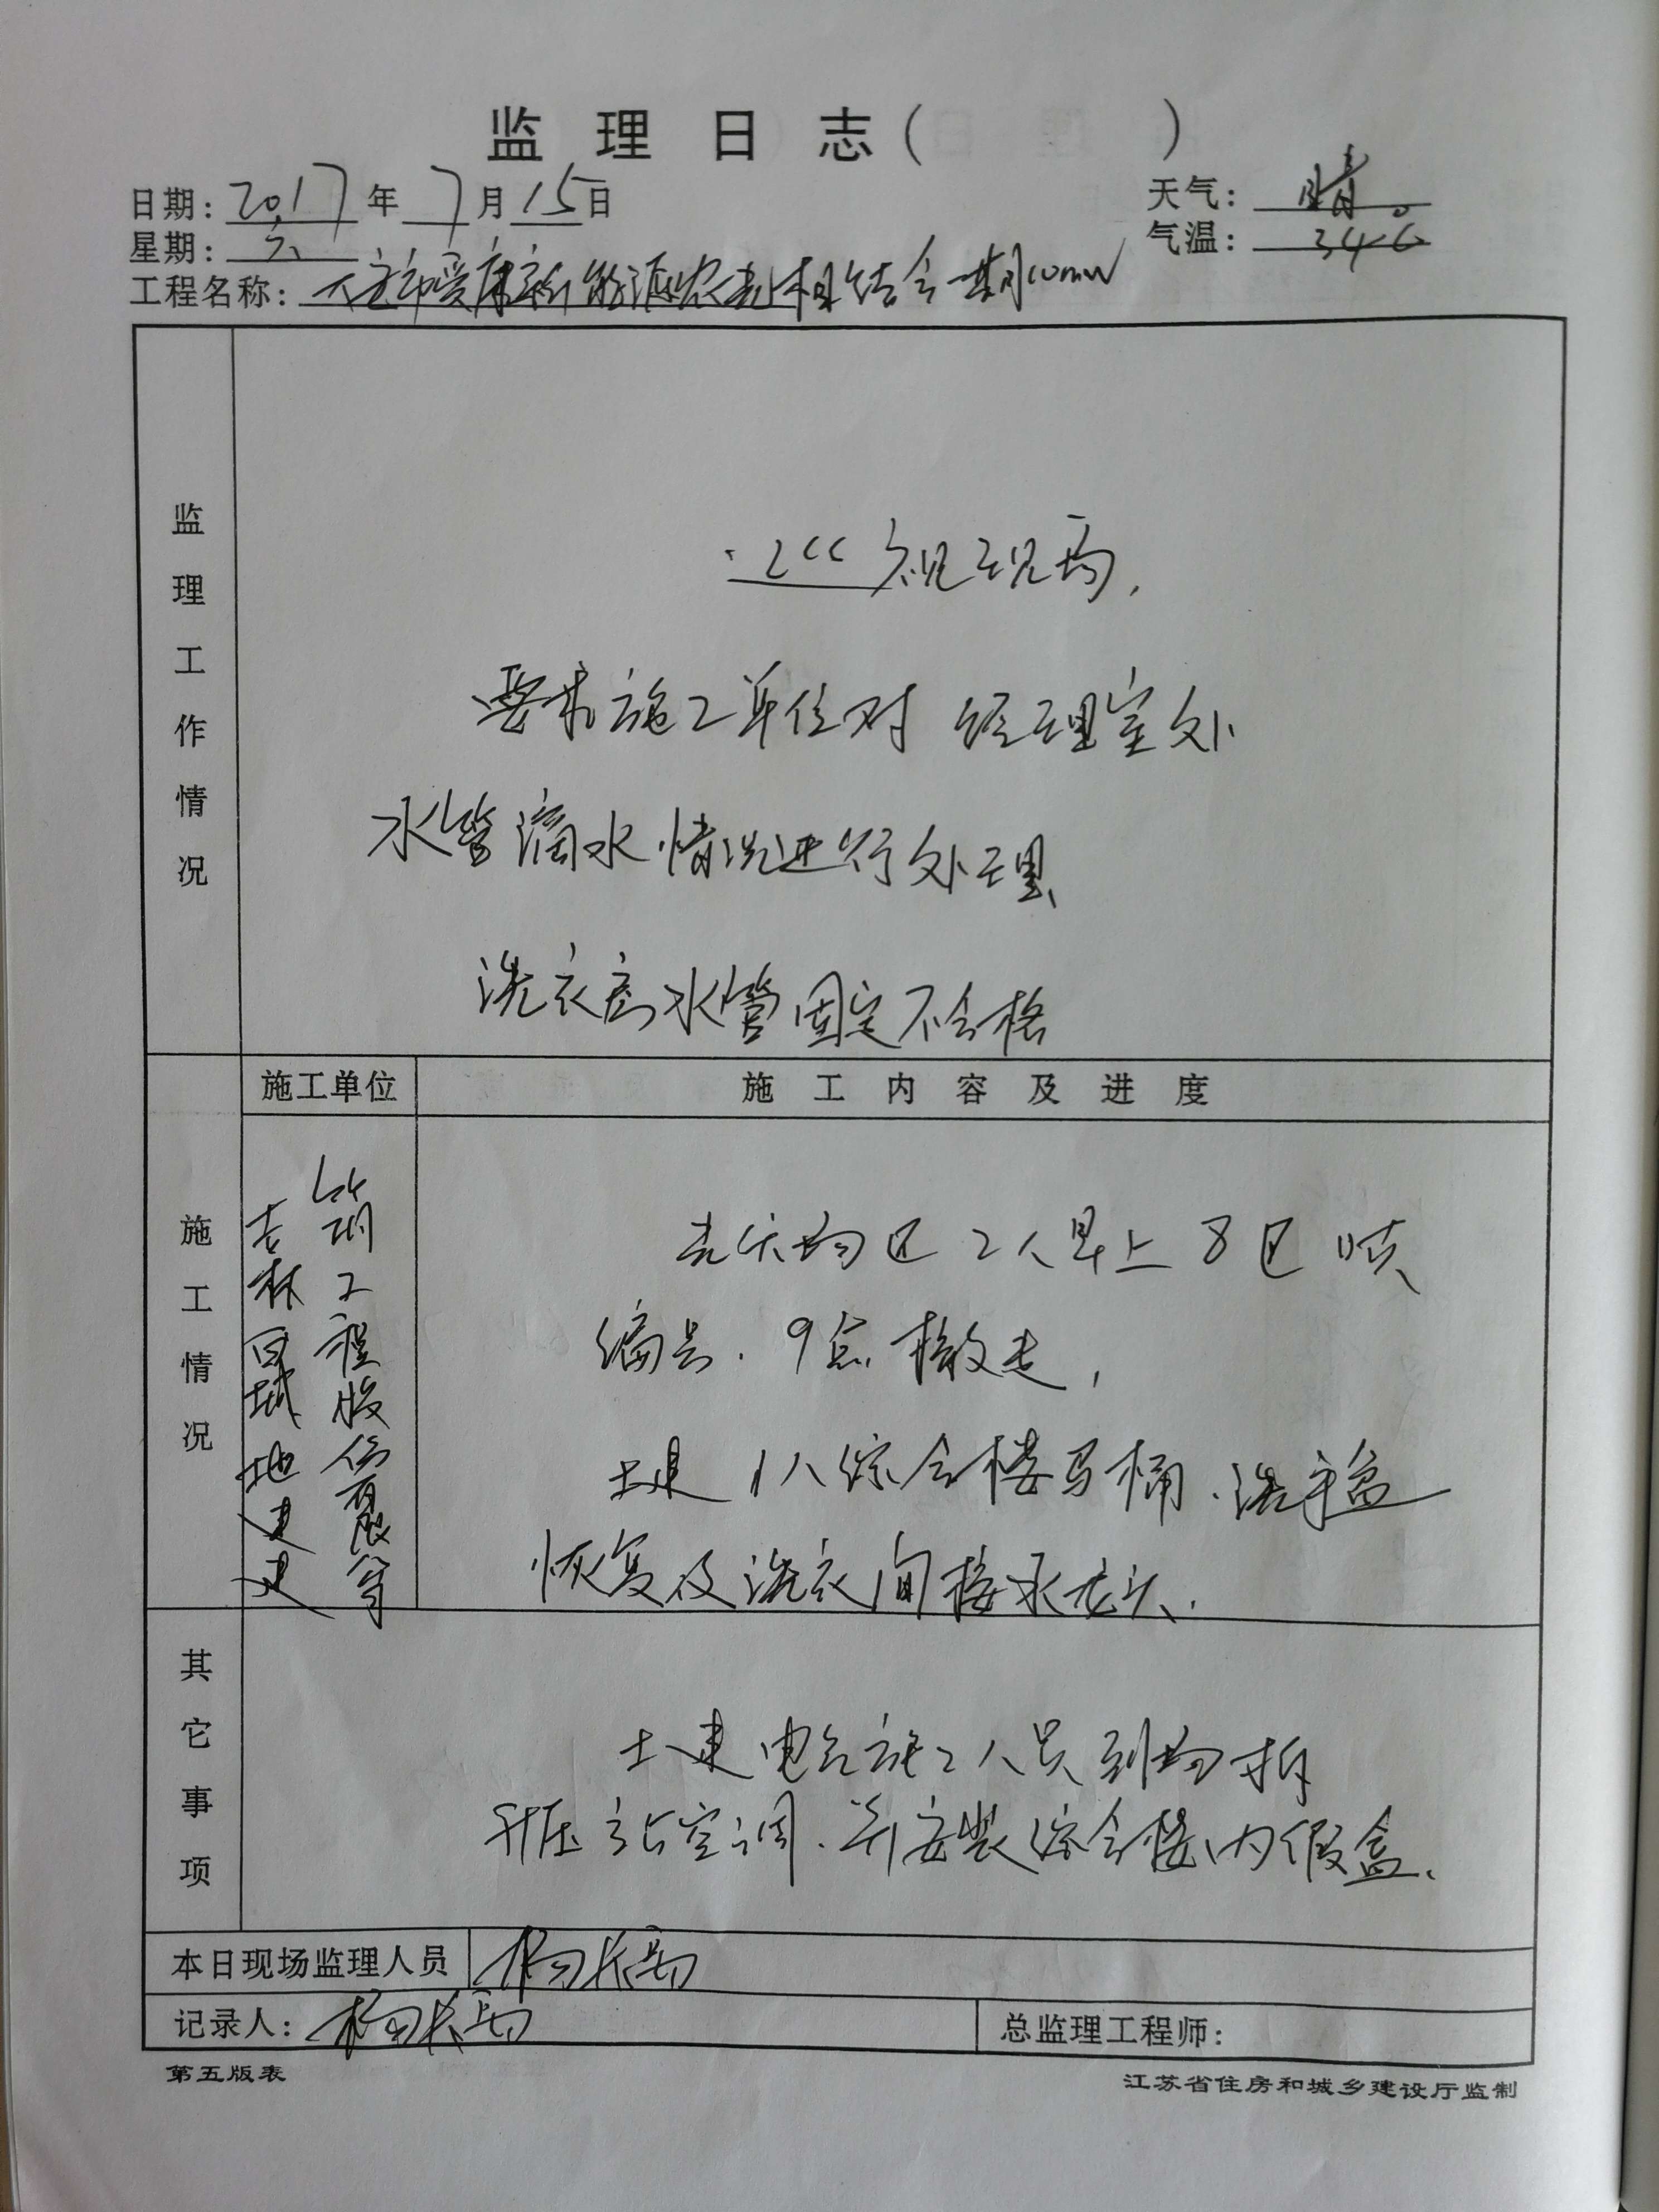 监理日志( )
日期: 2017 年 7 月 15 日
天气: 晴。
星期: 六
气温: 34℃
工程名称: 爱康新能源农光相结合一期10mw
监理工作情况
巡视现场,
要求施工单位对 经理室处
水管滴水情况进行处理、
洗衣房水管固定不合格
施工单位
施工内容及进度
施工情况
吉林百城地建
筑工程股份有限公司
光伏场区 2人早上 8区 喷
编号. 9点 撤走,
土建 1人综合楼马桶、洗手盆
恢复及洗衣间接水龙头.
其它事项
土建电气施工人员到场拆
升压站空调、并安装综合楼内假盒、
本日现场监理人员 杨长
记录人: 杨长
总监理工程师:
第五版表
江苏省住房和城乡建设厅监制